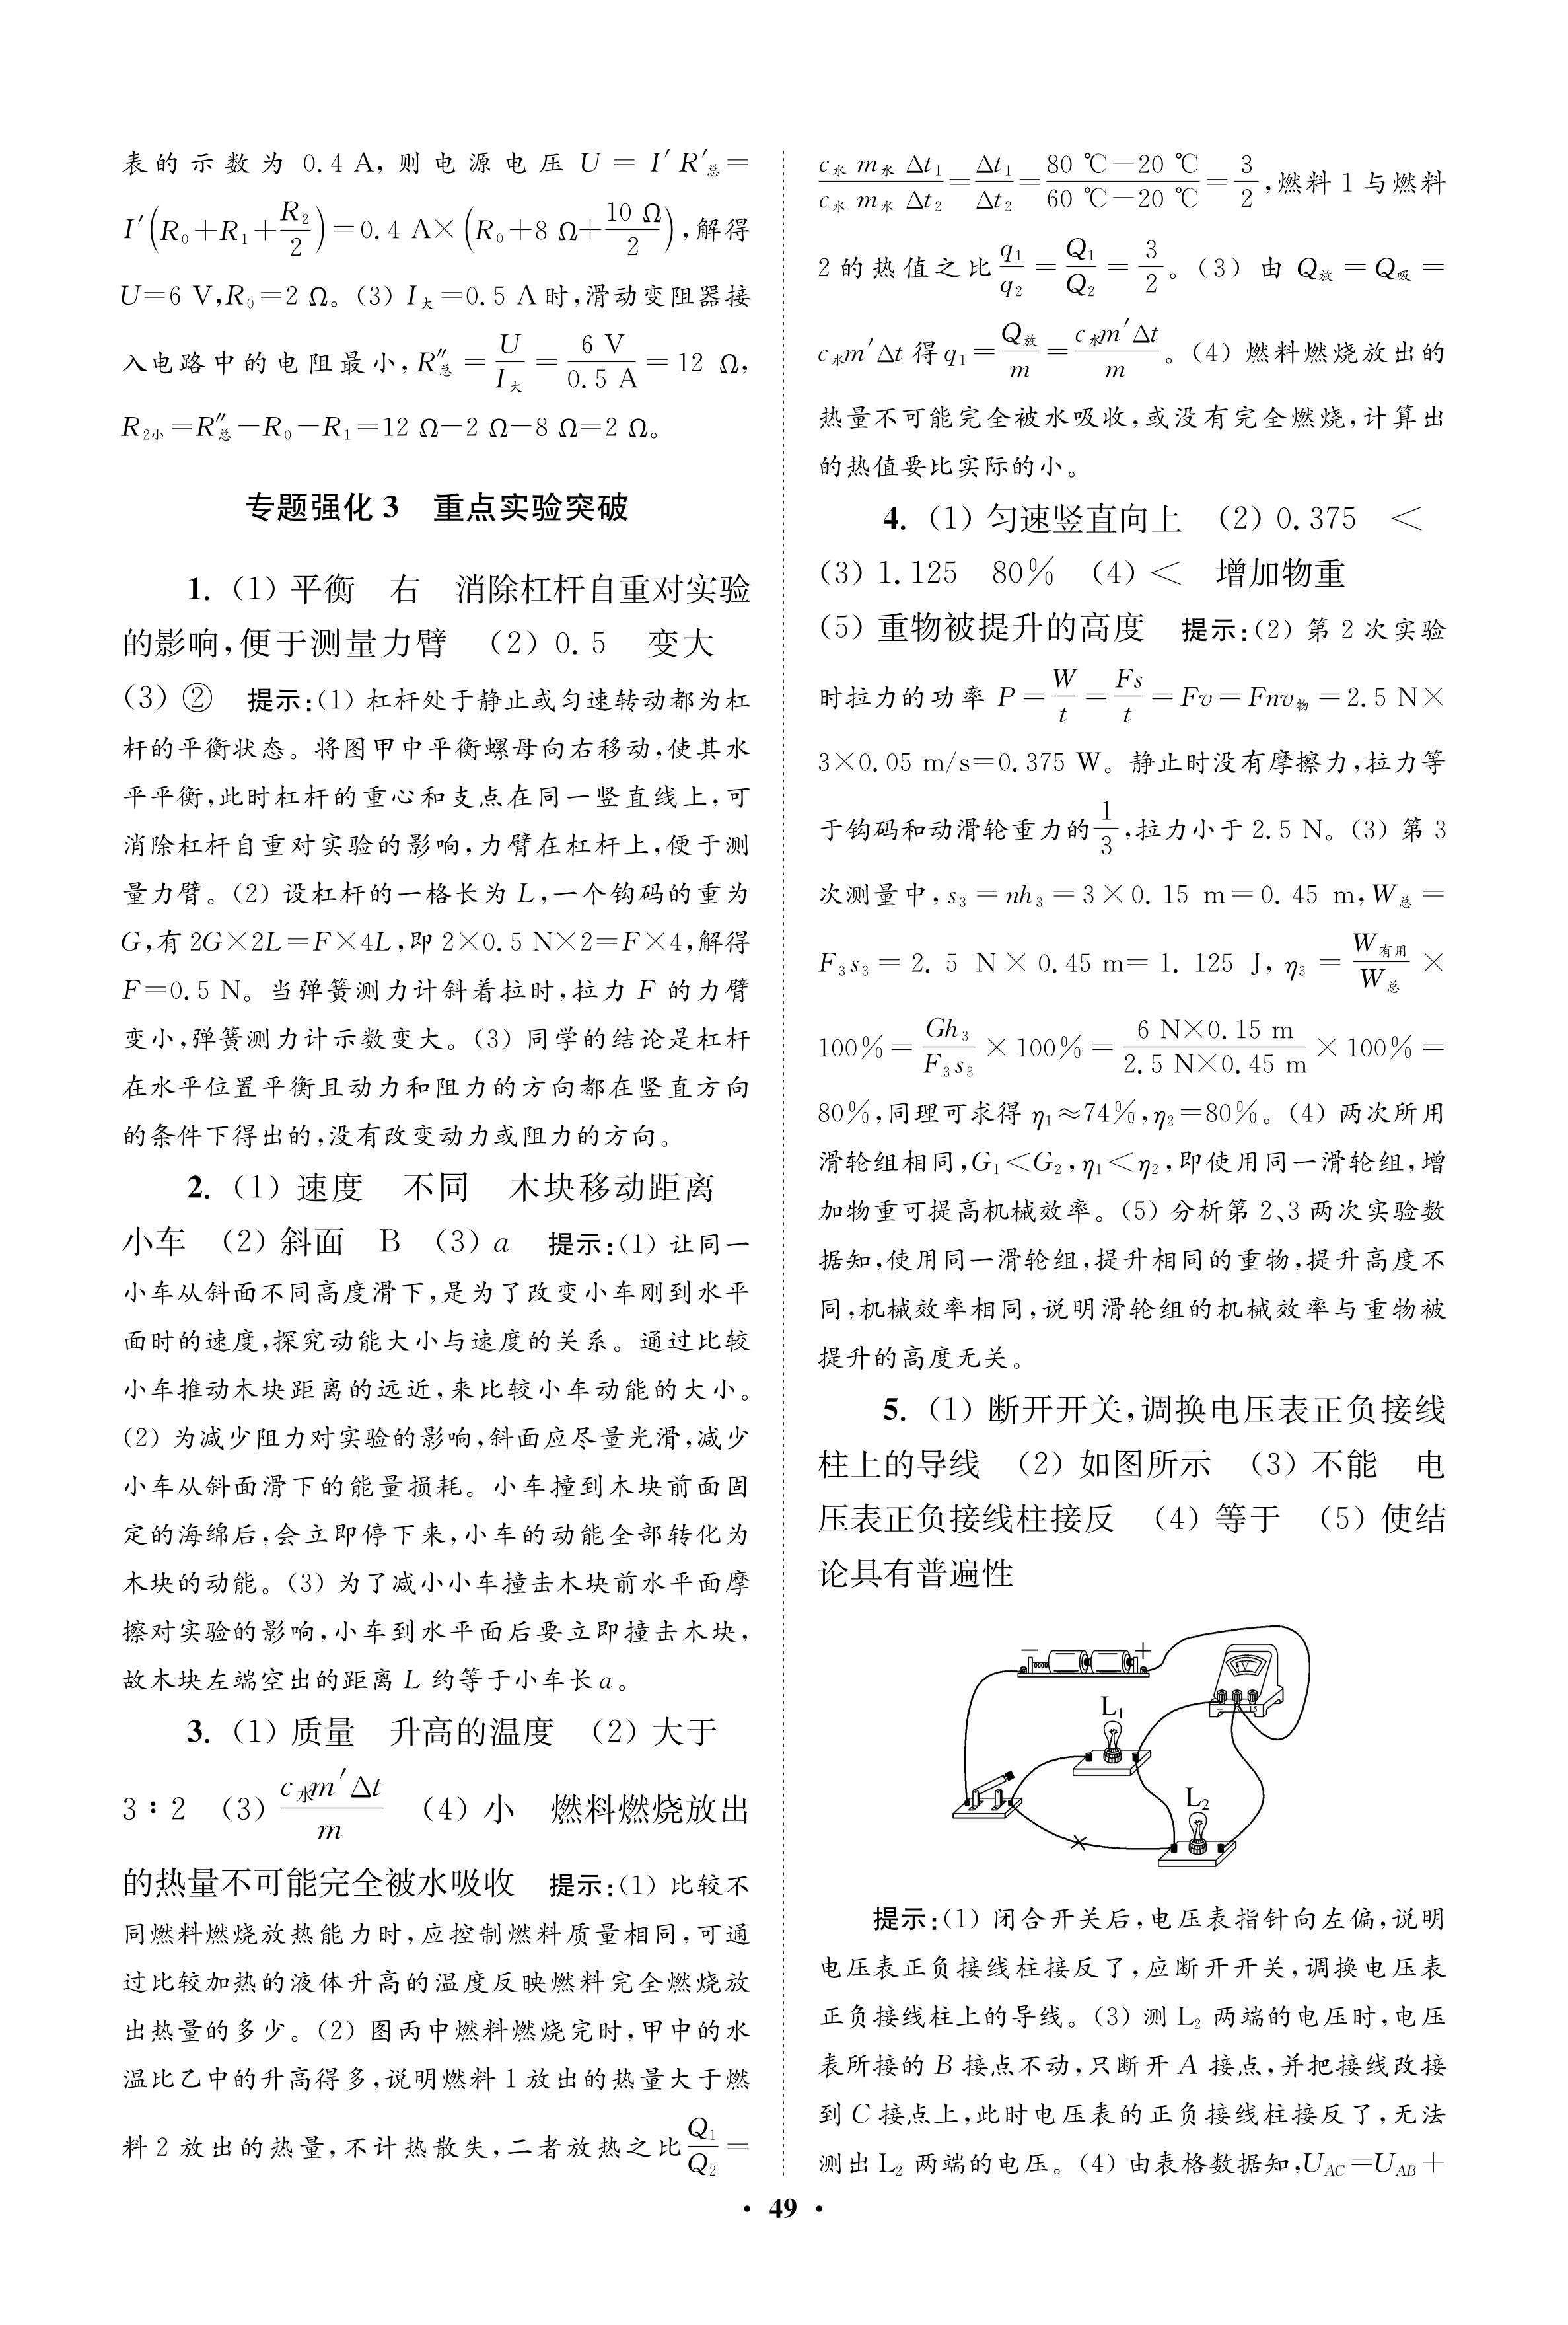 表的示数为 0.4 A, 则电源电压 U = I′R′总 =
I′(R₀+R₁+R₂/2)=0.4 A×(R₀+8 Ω+10 Ω/2),解得
U=6 V,R₀=2 Ω。(3) I大=0.5 A时,滑动变阻器接
入电路中的电阻最小,R″总=U/I大=6 V/0.5 A=12 Ω,
R₂小=R″总-R₀-R₁=12 Ω-2 Ω-8 Ω=2 Ω。
专题强化3 重点实验突破
1. (1) 平衡 右 消除杠杆自重对实验
的影响,便于测量力臂 (2) 0.5 变大
(3) ② 提示:(1) 杠杆处于静止或匀速转动都为杠
杆的平衡状态。将图甲中平衡螺母向右移动,使其水
平平衡,此时杠杆的重心和支点在同一竖直线上,可
消除杠杆自重对实验的影响,力臂在杠杆上,便于测
量力臂。(2) 设杠杆的一格长为 L,一个钩码的重为
G,有 2G×2L=F×4L,即 2×0.5 N×2=F×4,解得
F=0.5 N。当弹簧测力计斜着拉时,拉力 F 的力臂
变小,弹簧测力计示数变大。(3) 同学的结论是杠杆
在水平位置平衡且动力和阻力的方向都在竖直方向
的条件下得出的,没有改变动力或阻力的方向。
2. (1) 速度 不同 木块移动距离
小车 (2) 斜面 B (3) a 提示:(1) 让同一
小车从斜面不同高度滑下,是为了改变小车刚到水平
面时的速度,探究动能大小与速度的关系。通过比较
小车推动木块距离的远近,来比较小车动能的大小。
(2) 为减少阻力对实验的影响,斜面应尽量光滑,减少
小车从斜面滑下的能量损耗。小车撞到木块前面固
定的海绵后,会立即停下来,小车的动能全部转化为
木块的动能。(3) 为了减小小车撞击木块前水平面摩
擦对实验的影响,小车到水平面后要立即撞击木块,
故木块左端空出的距离 L 约等于小车长 a。
3. (1) 质量 升高的温度 (2) 大于
3∶2 (3) c水m′Δt/m (4) 小 燃料燃烧放出
的热量不可能完全被水吸收 提示:(1) 比较不
同燃料燃烧放热能力时,应控制燃料质量相同,可通
过比较加热的液体升高的温度反映燃料完全燃烧放
出热量的多少。(2) 图丙中燃料燃烧完时,甲中的水
温比乙中的升高得多,说明燃料1放出的热量大于燃
料2放出的热量,不计热散失,二者放热之比Q₁/Q₂=
c水 m水 Δt₁/c水 m水 Δt₂=Δt₁/Δt₂=80 ℃-20 ℃/60 ℃-20 ℃=3/2,燃料1与燃料
2的热值之比q₁/q₂=Q₁/Q₂=3/2。(3) 由 Q放=Q吸=
c水m′Δt 得 q₁=Q放/m=c水m′Δt/m。(4) 燃料燃烧放出的
热量不可能完全被水吸收,或没有完全燃烧,计算出
的热值要比实际的小。
4. (1) 匀速竖直向上 (2) 0.375 <
(3) 1.125 80% (4) < 增加物重
(5) 重物被提升的高度 提示:(2) 第2次实验
时拉力的功率 P=W/t=Fs/t=Fv=Fnv物=2.5 N×
3×0.05 m/s=0.375 W。静止时没有摩擦力,拉力等
于钩码和动滑轮重力的1/3,拉力小于2.5 N。(3) 第3
次测量中,s₃=nh₃=3×0.15 m=0.45 m,W总=
F₃s₃=2.5 N×0.45 m=1.125 J,η₃=W有用/W总×
100%=Gh₃/F₃s₃×100%=6 N×0.15 m/2.5 N×0.45 m×100%=
80%,同理可求得 η₁≈74%,η₂=80%。(4) 两次所用
滑轮组相同,G₁<G₂,η₁<η₂,即使用同一滑轮组,增
加物重可提高机械效率。(5) 分析第2、3两次实验数
据知,使用同一滑轮组,提升相同的重物,提升高度不
同,机械效率相同,说明滑轮组的机械效率与重物被
提升的高度无关。
5. (1) 断开开关,调换电压表正负接线
柱上的导线 (2) 如图所示 (3) 不能 电
压表正负接线柱接反 (4) 等于 (5) 使结
论具有普遍性
- +
L₁
L₂
提示:(1) 闭合开关后,电压表指针向左偏,说明
电压表正负接线柱接反了,应断开开关,调换电压表
正负接线柱上的导线。(3) 测 L₂ 两端的电压时,电压
表所接的 B 接点不动,只断开 A 接点,并把接线改接
到 C 接点上,此时电压表的正负接线柱接反了,无法
测出 L₂ 两端的电压。(4) 由表格数据知,U_AC=U_AB+
• 49 •